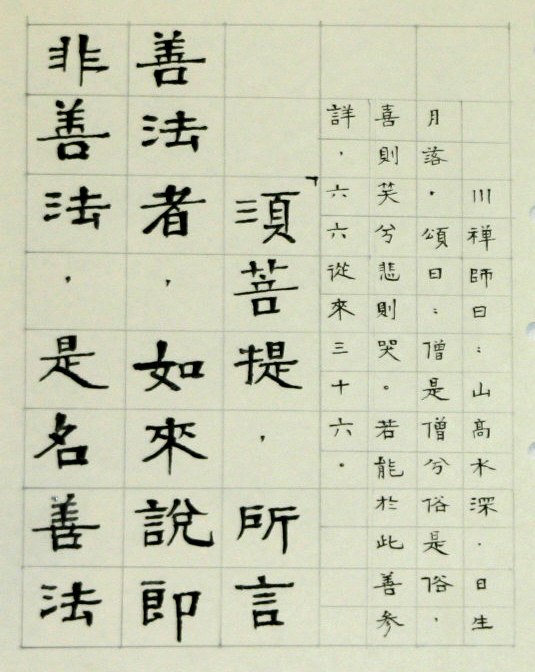 川禅師曰：山高水深．日生
月落．頌曰：僧是僧兮俗是俗，
喜則笑兮悲則哭。若能於此善参
詳，六六從來三十六．
須菩提，所言
善法者，如來說即
非善法，是名善法